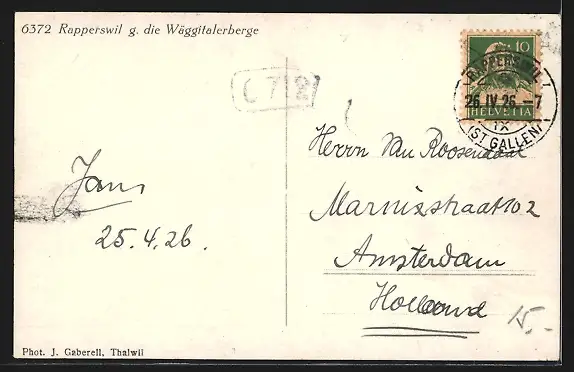 6372 Rapperswil g. die Wäggitalerberge
10
HELVETIA
RAPPERSWIL 1
26.IV.26.–7
IX
(ST GALLEN)
C 712
Herrn Van Roosendaal
Marnixstraat 102
Amsterdam
Holland
Jans
25.4.26.
15.-
Phot. J. Gaberell, Thalwil